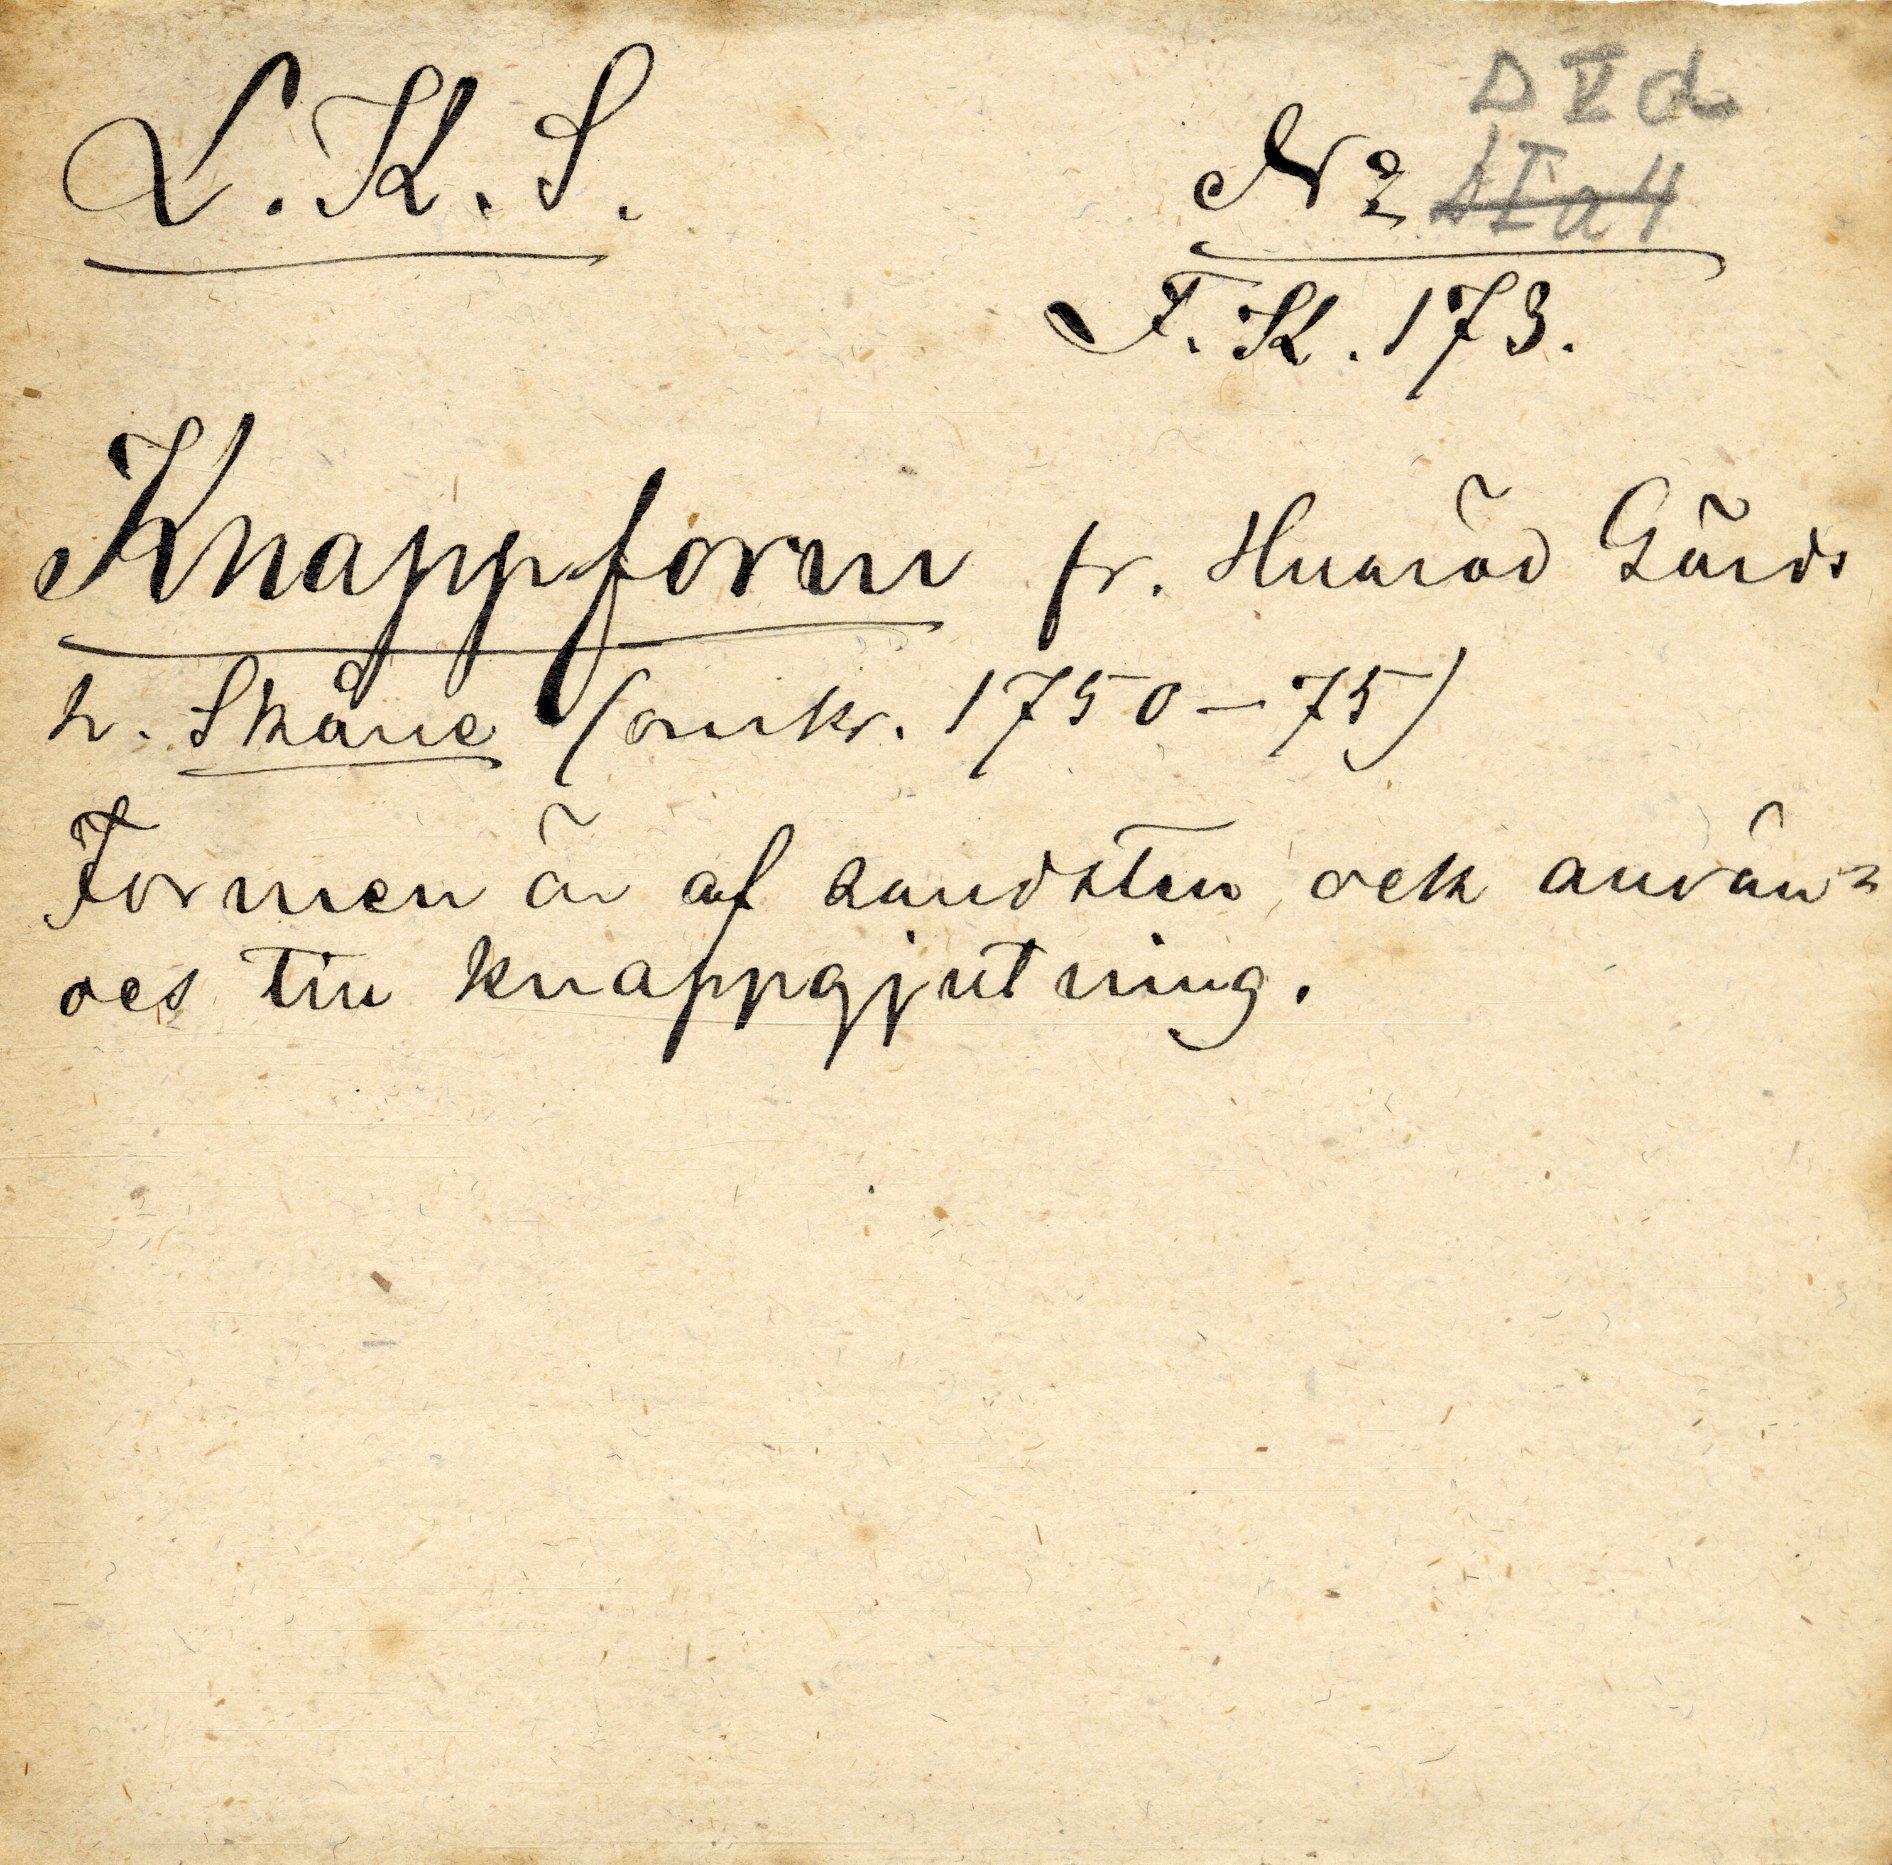 L.K.S.
D V d
N 2 D I a 4
F.K. 173.
Knappform fr. Huaröd Gärds
h. Skåne (omkr. 1750–75)
Formen är af sandsten, ock använ=
des till knappgjutning.